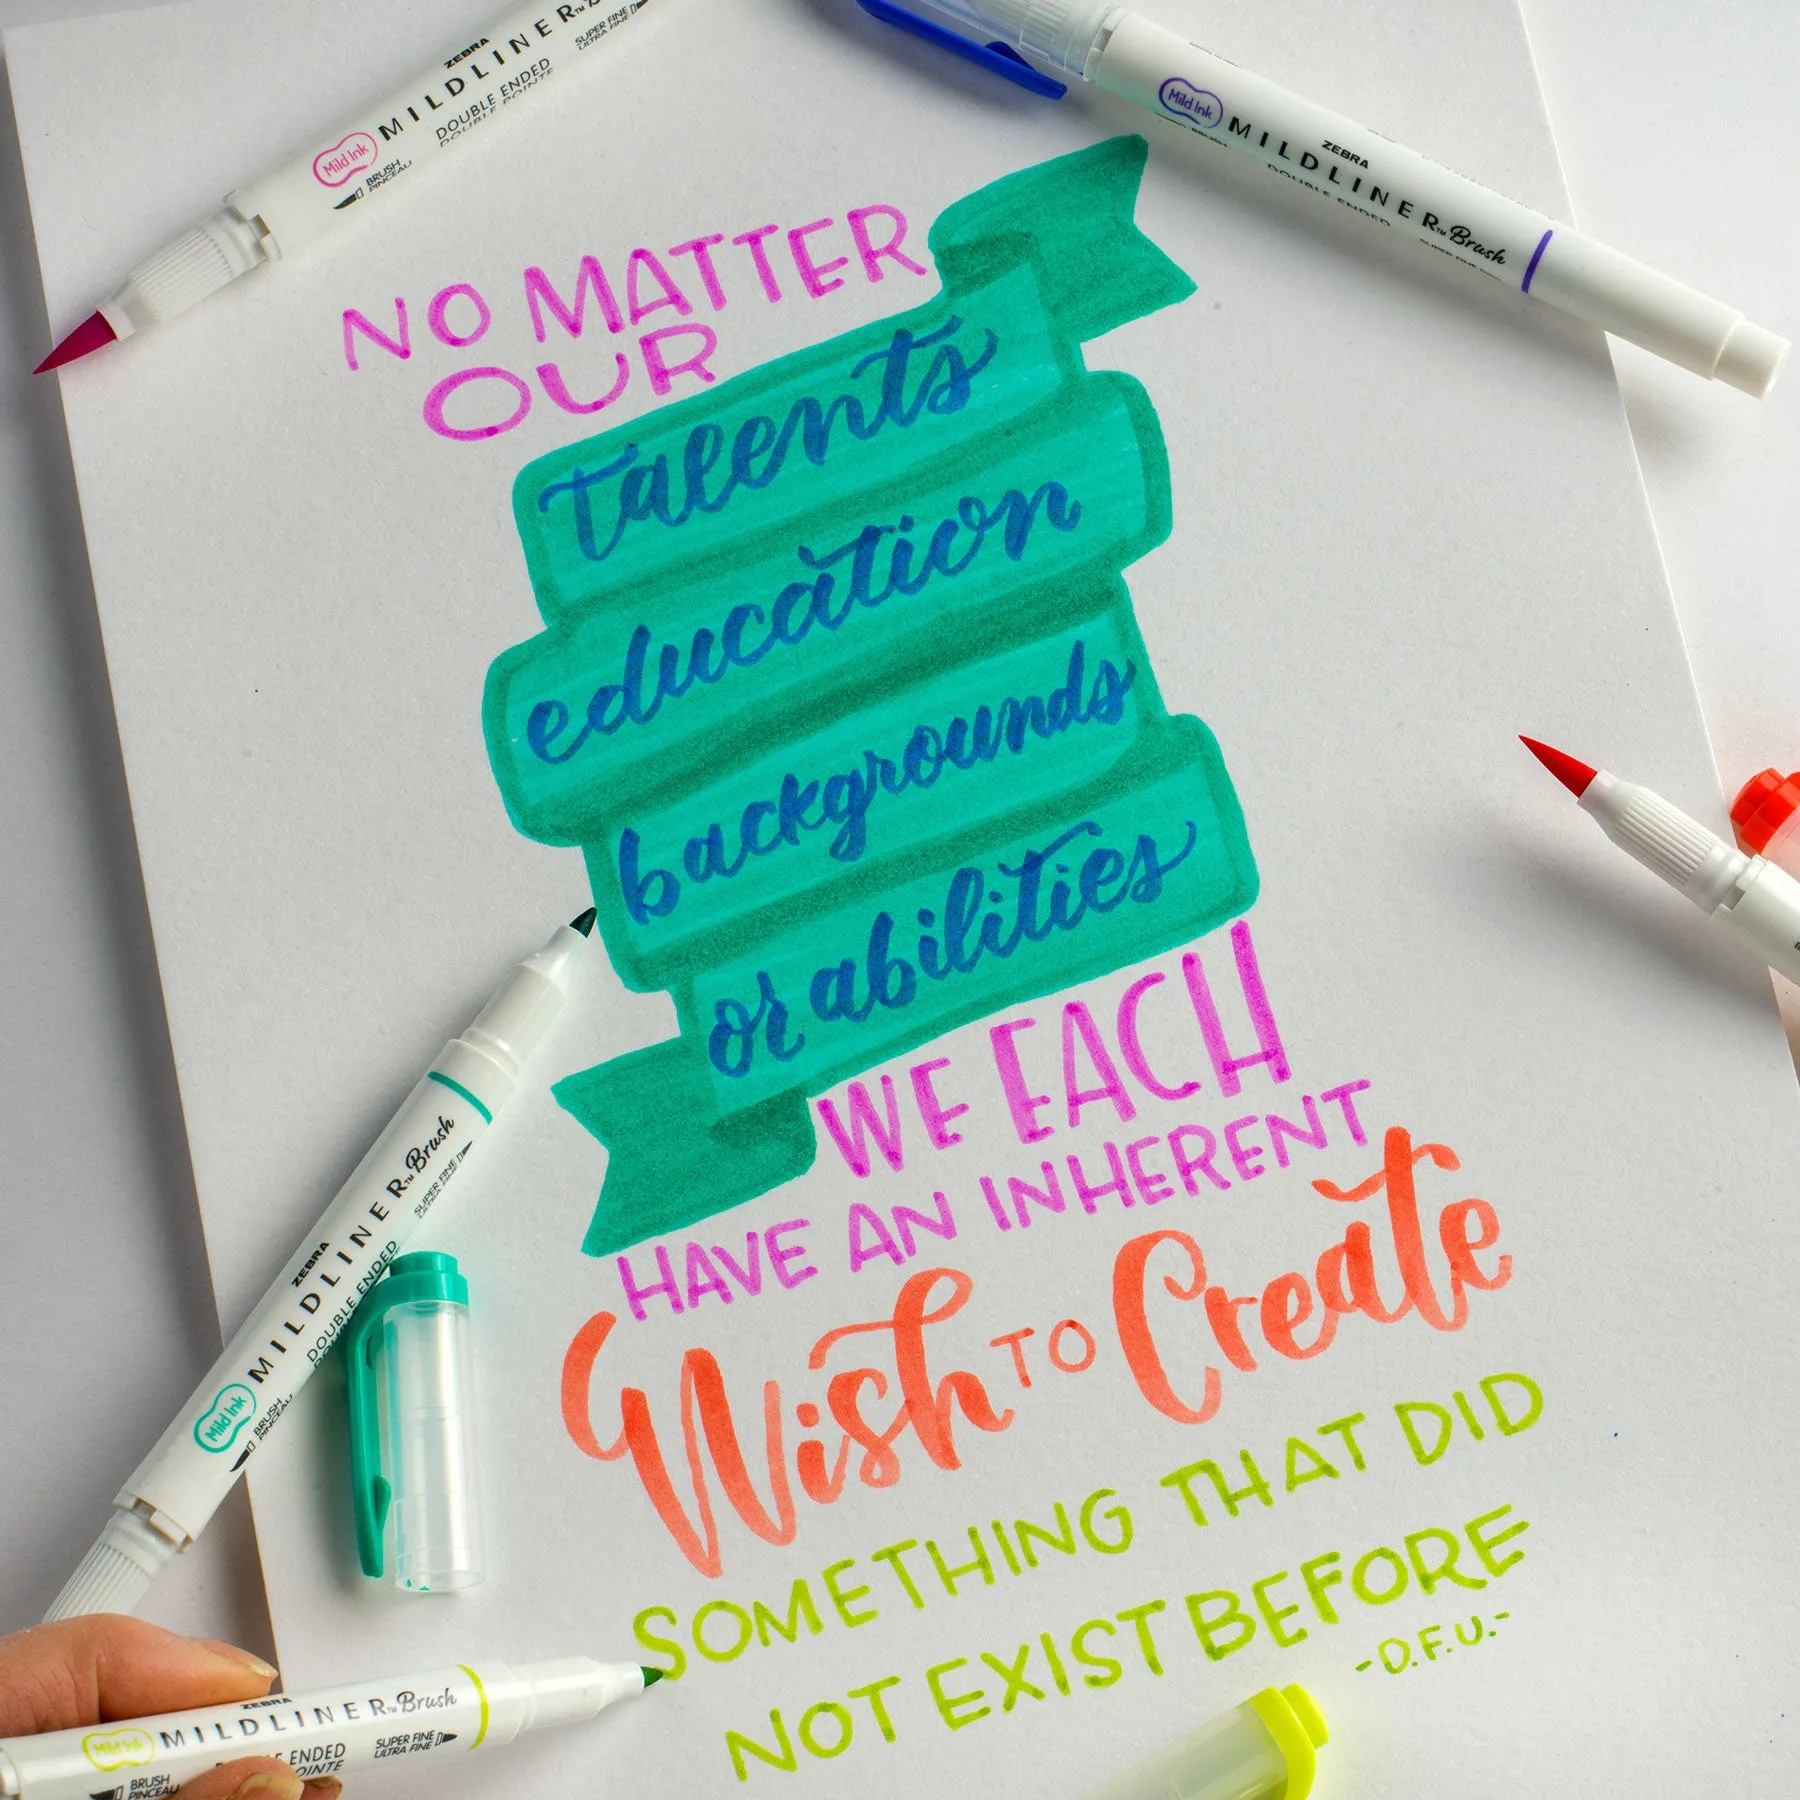 NO MATTER
OUR
talents
education
backgrounds
or abilities
WE EACH
HAVE AN INHERENT
Wish TO Create
SOMETHING THAT DID
NOT EXIST BEFORE
-D.F.U.-
ZEBRA
MILDLINER
DOUBLE ENDED
DOUBLE POINTE
SUPER FINE
ULTRA FINE
Mild Ink
BRUSH
PINCEAU
Mild Ink
ZEBRA
MILDLINER™ Brush
DOUBLE ENDED
ZEBRA
MILDLINER™ Brush
DOUBLE ENDED
SUPER FINE
Mild Ink
BRUSH
PINCEAU
ZEBRA
Mild Ink MILDLINER™ Brush
ENDED
SUPER FINE
ULTRA FINE
BRUSH
PINCEAU